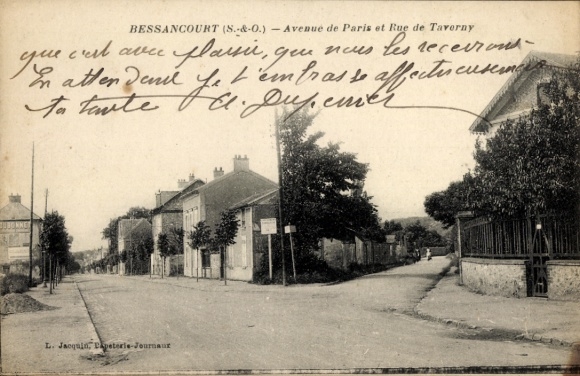 BESSANCOURT (S.-&-O.) — Avenue de Paris et Rue de Taverny
que c'est avec plaisir, que nous les recevrons
En attendant je t'embrasse affectueusement
ta tante
L. Jacquin, Papeterie-Journaux